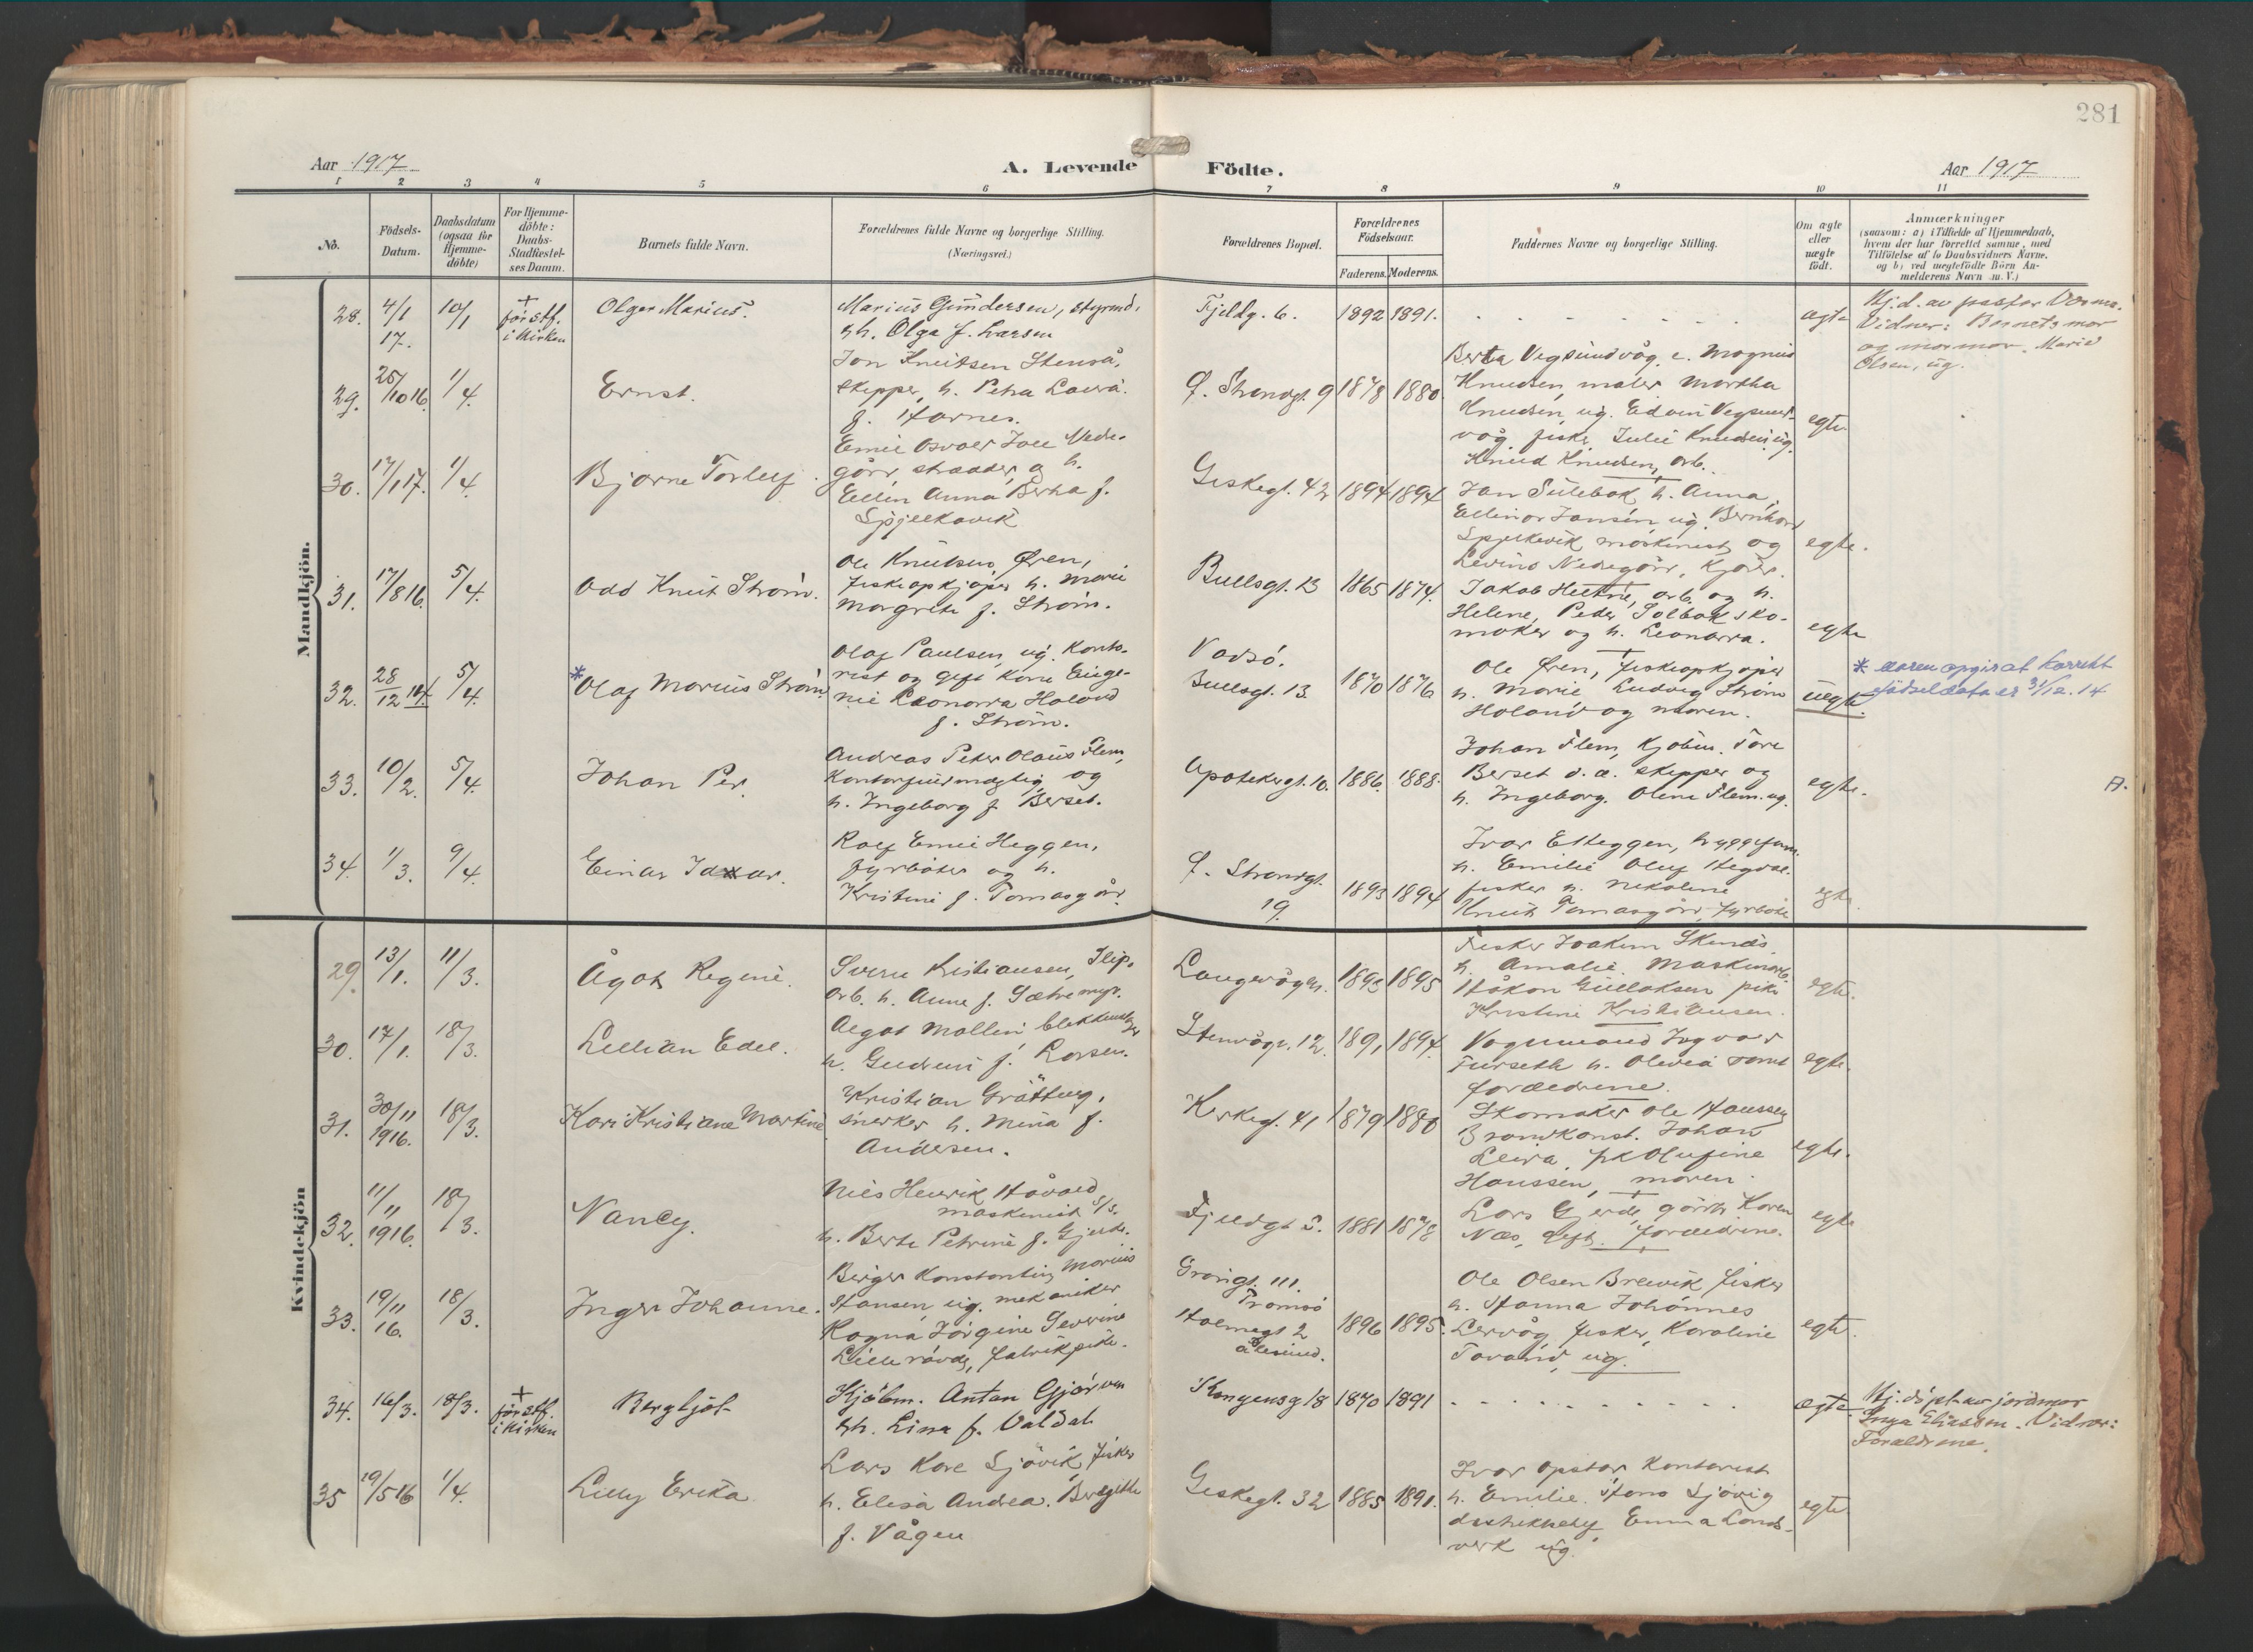 281
Aar 1917
A. Levende Födte.
Aar 1917
1 2 3 4 5 6 7 8 9 10 11
No.
Födsels-
Datum.
Daabsdatum
(ogsaa for
Hjemme-
döbte)
For Hjemme-
döbte:
Daabs-
Stadfestel-
ses Datum.
Barnets fulde Navn.
Forældrenes fulde Navne og borgerlige Stilling.
(Næringsvei.)
Forældrenes Bopæl.
Forældrenes
Födselsaar.
Faderens. Moderens.
Faddernes Navne og borgerlige Stilling.
Om ægte
eller
uægte
födt.
Anmærkninger
(saasom: a) i Tilfælde af Hjemmedaab,
hvem der har forrettet samme, med
Tilföielse af to Daabsvidners Navne.
og b) ved uægtefödte Börn An-
melderens Navn m. V.)
Mandkjön.
28. 4/1 17. 10/1 + för stf. i kirken
Olger Marius.
Marius Gundersen, styrmd.
h. Olga f. Larsen
Fjeldg. 6. 1892 1891.
ægte
Hj.d. av pastor
Vidner: Barnets mor
og mormor. Marie
Olsen, ug.
29. 25/10 16. 1/4.
Ernst.
Jon Knutsen Stenså,
skipper, h. Petra Laura
f. Harnes.
Ø. Strandgt. 9 1878 1880
Berta Vegsundvåg, e. Magnus
Knudsen, maler Martha
Knudsen ug. Edvin Vegsund-
våg, fisker, Julie Knudsen ug.
Knud Knudsen, arb.
egte.
30. 17/1 17. 1/4.
Bjarne Torleif.
Emil Osvald Joel Nede-
gård, skrædder, og h.
Ellen Anna Berta f.
Spjelkavik
Giskegt. 42 1894 1894
Jon Sulebak, h. Anna,
Ellinor Jansen, ug. Bernhard
Spjelkavik maskinist, og
Levino Nedegård, kjörer.
egte.
31. 17/8 16. 5/4.
Odd Knut Ström.
Ole Knutsen Øren,
fiskeopkjøper h. Marie
Margrete f. Ström.
Bullsgt. 13 1865 1874.
Jakob arb. og h.
Helene, Peder Solbak sko-
maker og h. Leonarra.
egte
32. 28/12 14. 5/4.
* Olaf Marius Ström
Olaf Paulsen, ug. konto-
rist og gift kone Euge-
nie Leonarra Holand
f. Ström.
Vadsö.
Bullsgt. 13. 1870 1876
Ole Øren, fiskeopkjøper
h. Marie Ludvig Ström
Holand og moren.
uegte
* moren opgir at korrekt
födselsdata er 31/12. 14
33. 10/2. 5/4.
Johan Per.
Andreas Peter Olaus Flem,
kontorfuldmægtig og
h. Ingeborg f. Berset.
Apotekergt. 10. 1886. 1888.
Johan Flem, kjøbm. Tore
Berset d. æ. skipper og
h. Ingeborg. Oline Flem. ug.
egte.
A.
34. 1/3. 9/4.
Einar Ivar.
Rolf Emil Heggen,
fyrböter og h.
Kristine f. Tomasgård
Ø. Strandgt.
19. 1893 1894
Ivar Elteggen, bryggeform.
h. Emilie Oluf Hegdal
fisker h. Nikoline
Knut Tomasgård, fyrböter
egte.
Kvindekjön
29. 13/1. 11/3.
Ågot Regine.
Sverre Kristiansen, Slip-
arb. h. Anne f. Sætremyr.
Langevågen. 1893 1895
Fisker Joakim Skinäs
h. Amalie. Maskinarb.
Håkon Gulloksen pike
Kristine Kristiansen.
egte.
30. 17/1. 18/3.
Lillian Edel.
Algot Mollin, blekkenslager
h. Gudrun f. Larsen.
Stenvågv. 12. 1891 1894.
Vognmand Ingvar
Furseth h. Olivia samt
forældrene.
egte.
31. 30/11 1916. 18/3.
Kari Kristiane Martine
Kristian Gråtberg,
snekker h. Mina f.
Andersen.
Kirkegt. 41 1879 1880
Skomaker Ole Hanssen
Brandkonst. Johan
Leira, frk Olufine
Hanssen, moren.
egte.
32. 11/11 1916. 18/3.
Nancy.
Nils Henrik Håvold
maskinist S/S.
h. Berte Petrine f. Gjerde.
Fjeldgt 5. 1881 1878
Lars Gjerde, gårdb. Karen
Næs, gift. Forældrene.
egte
33. 19/11 16. 18/3.
Inger Johanne.
Birger Konstantin Marius
Hansen, ug. mekaniker
Ragna Jörgine Severine
Lillerövde, fabrikpike.
Grönngt. 111.
Tromsö
Holmegt 2
Ålesund. 1896 1895.
Ole Olsen Breivik fisker
h. Hanna Johannes
Lervåg, fisker, Karoline
ug.
egte.
34. 16/3. 18/3. + för stf. i kirken
Bergljot
Kjöbm. Anton Gjörven
h. Lina f. Valdal
Kongensg 18 1870 1891
ægte
Hj. döpt av jordmor
Inga Eliassen. Vidner:
Forældrene.
35 19/5 16 1/4.
Lilly Erika
Lars Kore Sjövik, fisker
h. Elisa Andrea Bergitte
f. Vågen
Giskegt. 32 1885 1891.
Ivar Opstad kontorist
h. Emilie. Hans Sjövig
Emma Lands-
verk ug.
egte